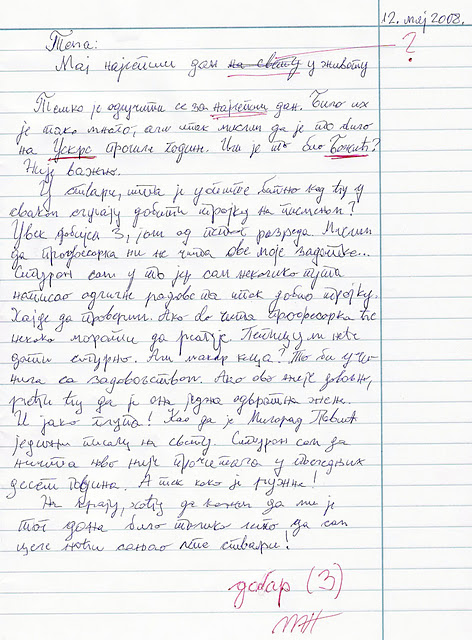 12. мај 2008.
Тема:
Мај најлепши дан на свету у животу
?
Тешко је одлучити се за најлепши дан. Било их
је тако много, али ипак мислим да је то било
на Ускрс прошле године. Или је то био Божић?
Није важно.
У ствари, шта је уопште битно кад ћу у
сваком случају добити тројку на писменом?
Увек добијем 3, још од петог разреда. Мислим
да професорка ни не чита ове моје задатке...
Сигуран сам у то јер сам неколико пута
написао одличне радове па ипак добио тројку.
Хајде да проверим. Ако ово чита професорка ће
некако морати да реагује. Петицу ми неће
дати сигурно. Али макар кеца? То би учи-
нила са задовољством. Ако ово није довољно,
рећи ћу да је она једна одвратна жена.
И јако глупа! Као да је Милорад Павић
једини писац на свету. Сигуран сам да
ништа ново није прочитала у последњих
десет година. А тек како је ружна!
На крају, хоћу да кажем да ми је
тог дана било толико лепо да сам
целе ноћи сањао лепе ствари!
добар (3)